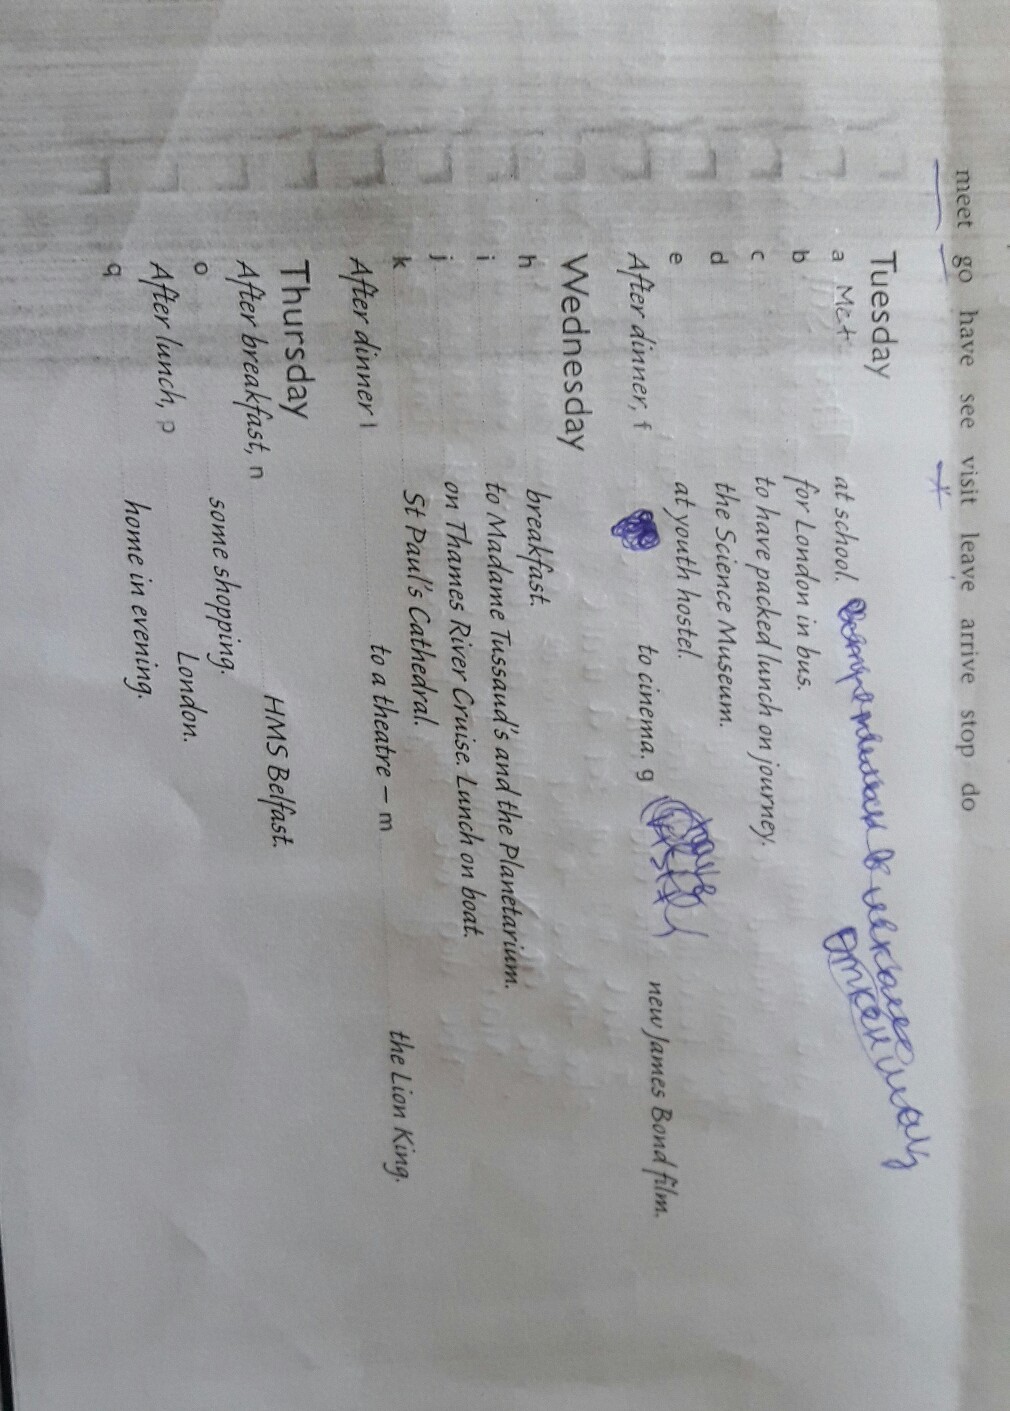 meet go have see visit leave arrive stop do
Tuesday
a Met at school.
b for London in bus.
c to have packed lunch on journey.
d the Science Museum.
e at youth hostel.
After dinner, f to cinema. g new James Bond film.
Wednesday
h breakfast.
i to Madame Tussaud's and the Planetarium.
j on Thames River Cruise. Lunch on boat.
k St Paul's Cathedral.
After dinner l to a theatre – m the Lion King.
Thursday
After breakfast, n HMS Belfast.
o some shopping.
After lunch, p London.
q home in evening.